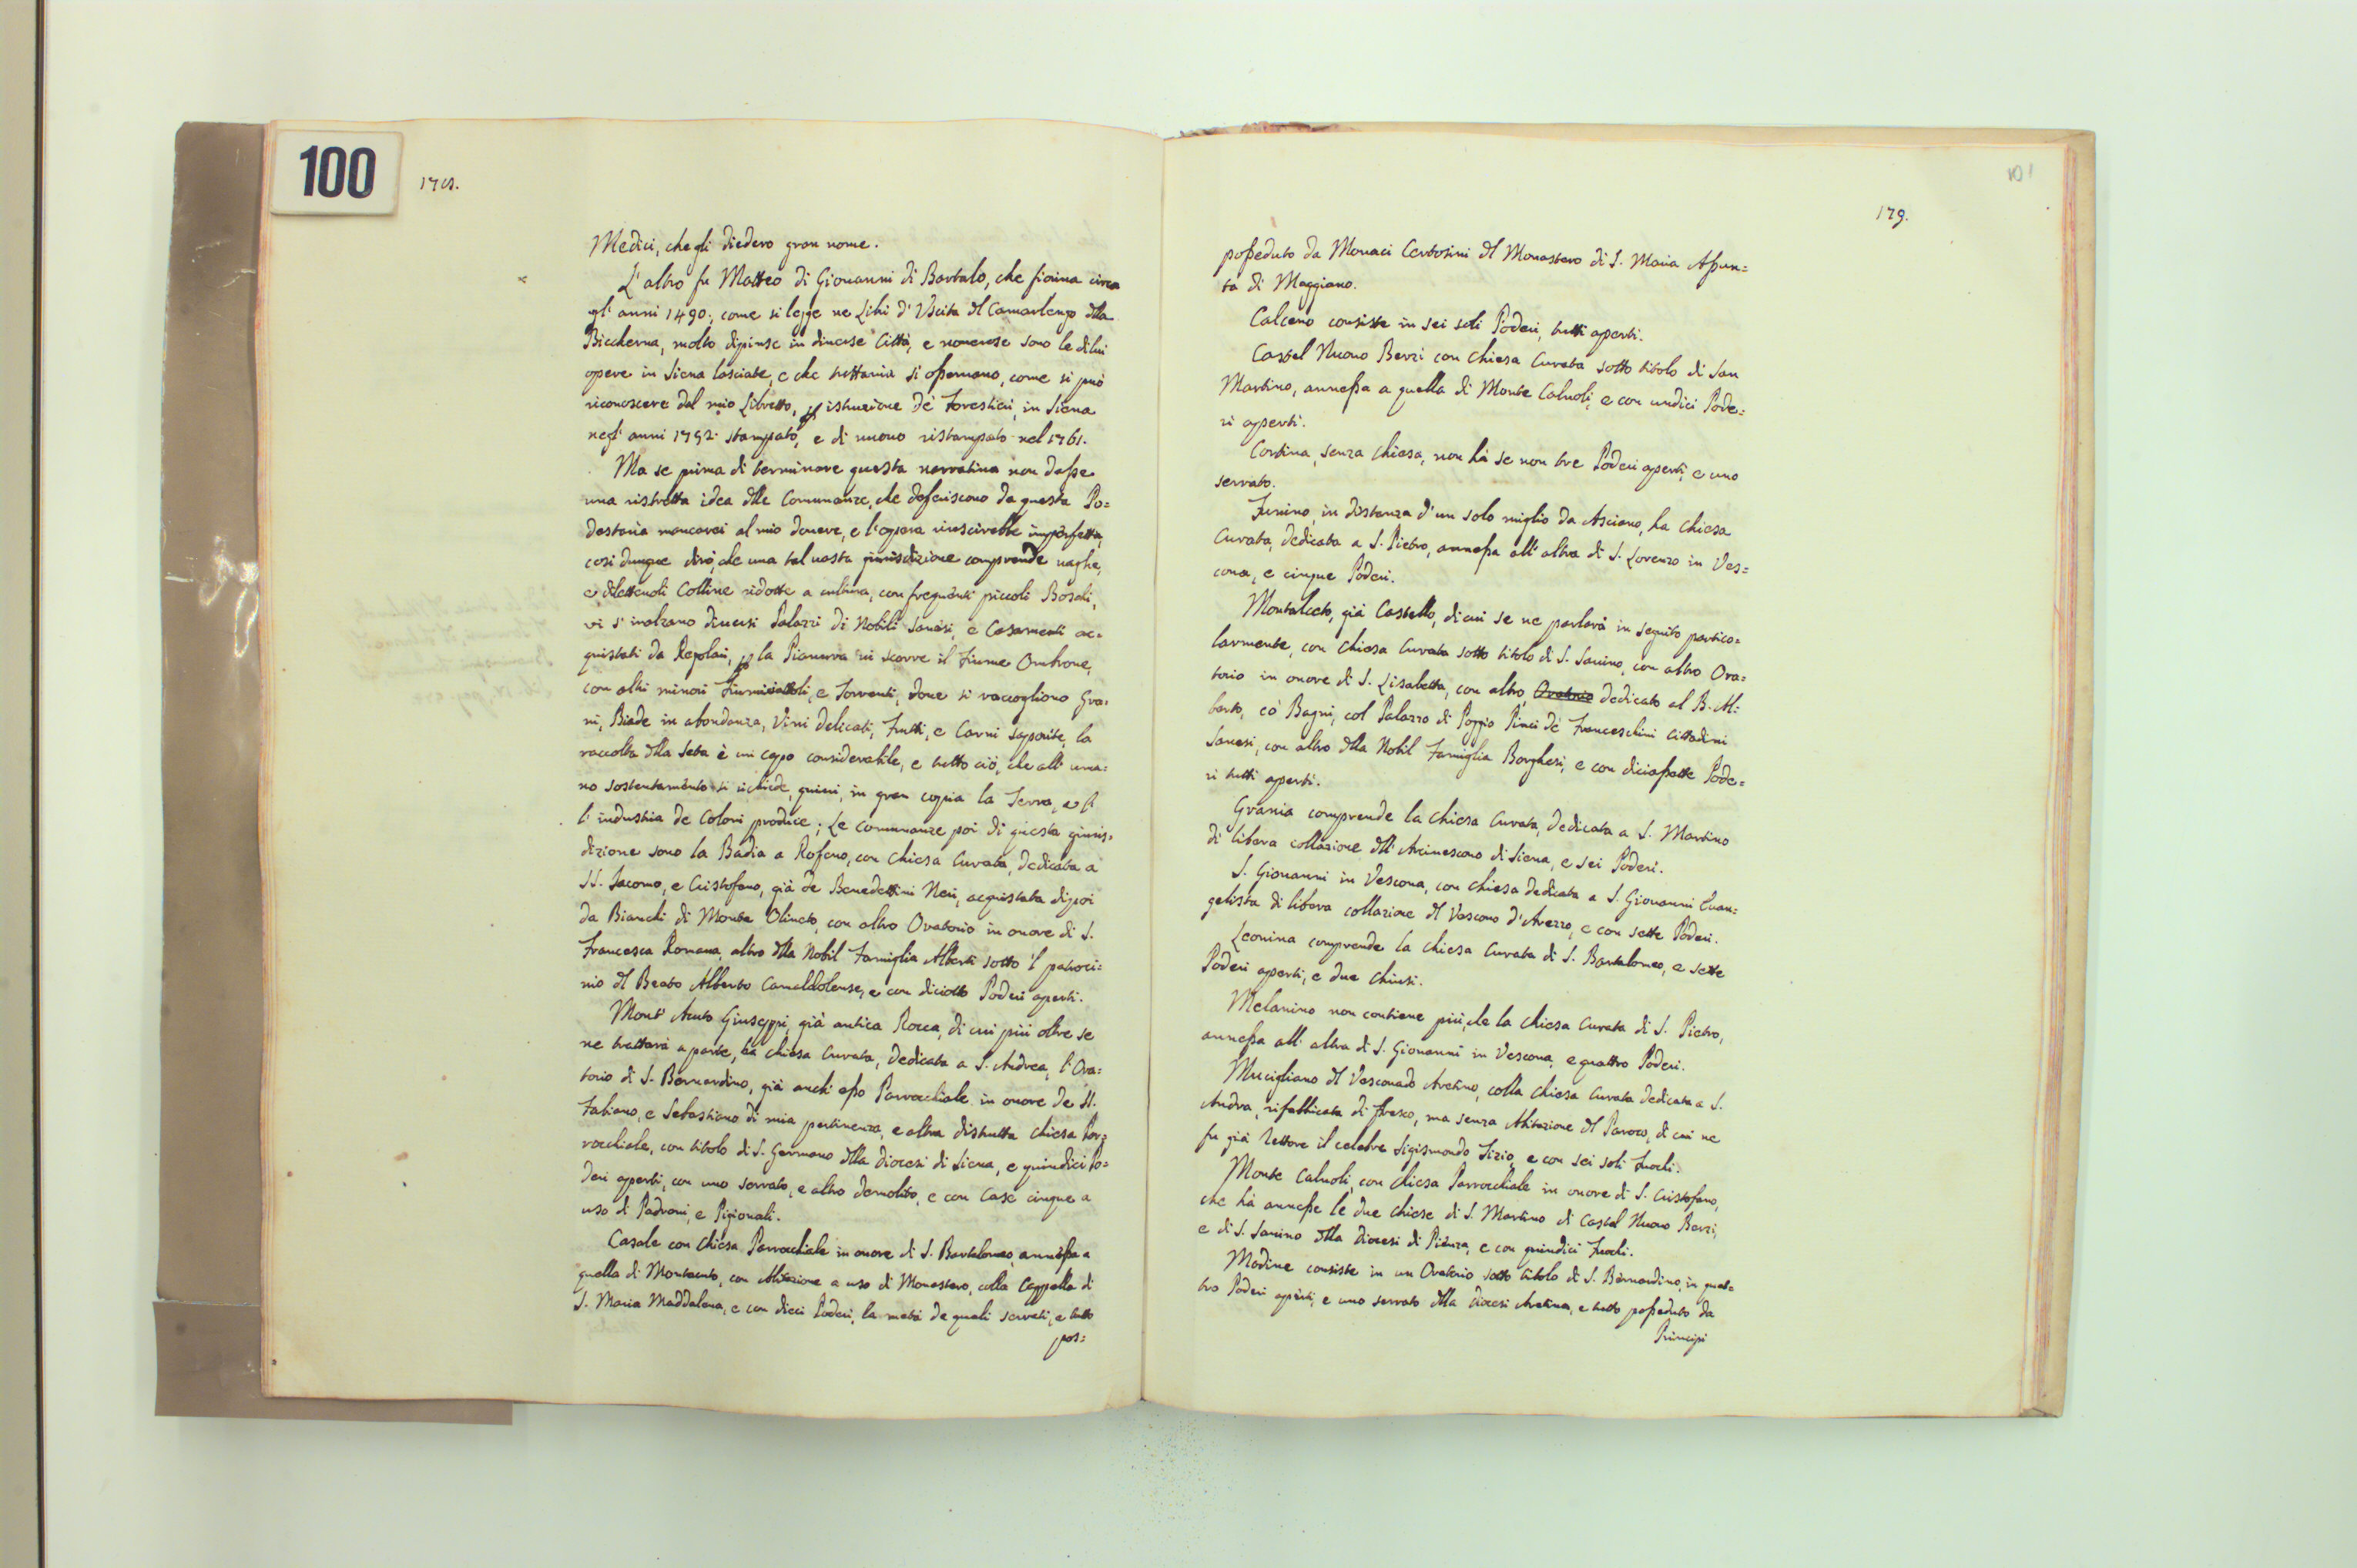 100
Medici, che gli diedero gran nome.
L'altro fu Matteo di Giouanni di Bartalo, che fioriua circa
gl'anni 1490., come si legge ne Libri d'Vscita dl Camarlengo dlla
Biccherna, molto dipinse in diuerse Città, e numerose sono le dilui
opere in Siena lasciate, e che tuttauia si osseruano, come si può
riconoscere dal mio Libretto, p istruzione de' Forestieri, in Siena
negl'anni 1752. stampato, e di nuouo ristampato nel 1761.
Ma se prima di terminare questa narratiua non dasse
una ristretta idea dlle Comunanze, che desferiscono da questa Po=
destaria mancarei al mio douere, e l'opera riuscirebbe imperfetta,
così dunque dirò, che una tal uasta giurisdizione comprende uaghe,
e dilettenoli Colline ridotte a cultura, con frequenti piccoli Boschi,
vi s'inalzano diuersi Palazzi di Nobili Sanesi, e Casamenti ac=
quistati da Regolari, p la Pianura ui scorre il Fiume Ombrone,
con altri minori Fiumiciattoli, e Torrenti, doue si raccogliono Gra=
ni, Biade in abondanza, Vini delicati, Frutti, e Carni saporite, la
raccolta dlla Seta è un capo considerabile, e tutto ciò, che all'uma=
no sostentamento si richiede, quiui, in gran copia la Terra, e p
l'industria de Coloni produce; Le comunanze poi di questa giuris=
dizione sono la Badia a Rofeno, con Chiesa Curata, dedicata a
SS. Jacomo, e Cristofano, già de Benedettini Neri, acquistata dipoi
da Bianchi di Monte Oliueto, con altro Oratorio in onore di S.
Francesca Romana, altro dlla Nobil Famiglia Alberti sotto 'l patroci=
nio dl Beato Alberto Camaldolense, e con diciotto Poderi aperti.
Mont'Acuto Giuseppi, già antica Rocca, di cui più oltre se
ne trattarà a parte, ha Chiesa Curata, dedicata a S. Andrea, l'Ora=
torio di S. Bernardino, già anch'esso Parrocchiale in onore de SS.
Fabiano, e Sebastiano di mia pertinenza, e altra distrutta Chiesa Par=
rocchiale, con titolo di S. Germano dlla Diocesi di Siena, e quindici Po=
deri aperti, con uno serrato, e altro demolito, e con Case cinque a
uso di Padroni, e Pigionali.
Casale con Chiesa Parrocchiale in onore di S. Bartalomeo, annessa a
quella di Montauto, con Abitazione a uso di Monastero, colla Cappella di
S. Maria Maddalena, e con dieci Poderi, la metà de quali serrati, e tutto
pos=
101
179.
posseduto da Monaci Certosini dl Monastero di S. Maria Assun=
ta di Maggiano.
Calceno consiste in sei soli Poderi, tutti aperti.
Castel Nuouo Berzi con Chiesa Curata sotto titolo di San
Martino, annessa a quella di Monte Caluoli, e con undici Pode=
ri aperti.
Cortina, senza Chiesa, non hà se non tre Poderi aperti, e uno
serrato.
Funino, in distanza d'un solo miglio da Asciano, ha Chiesa
Curata, dedicata a S. Pietro, annessa all'altra di S. Lorenzo in Ves=
cona, e cinque Poderi.
Montalceto, già Castello, di cui se ne parlarà in seguito partico=
larmente, con Chiesa Curata sotto titolo di S. Sauino, con altro Ora=
torio in onore di S. Lisabetta, con altro, Oratorio dedicato al B. Al=
berto, co' Bagni, col Palazzo di Poggio Pinci de' Franceschini Cittadini
Sanesi, con altro dlla Nobil Famiglia Borghesi, e con diciassette Pode=
ri tutti aperti.
Grania comprende la Chiesa Curata, dedicata a S. Martino
di libera collazione dll'Arciuescouo di Siena, e sei Poderi.
S. Giouanni in Vescona, con Chiesa dedicata a S. Giouanni Euan=
gelista di libera collazione dl Vescouo d'Arezzo, e con sette Poderi.
Leonina comprende la Chiesa Curata di S. Bartalomeo, e sette
Poderi aperti, e due Chiusi.
Melanino non contiene più, che la Chiesa Curata di S. Pietro,
annessa all'altra di S. Giouanni in Vescona, e quattro Poderi.
Mucigliano dl Vescouado Aretino, colla Chiesa Curata dedicata a S.
Andrea, rifabbricata di fresco, ma senza Abitazione dl Paroco, di cui ne
fu già Rettore il celebre Sigismondo Tizio, e con sei soli Fuochi.
Monte Caluoli, con Chiesa Parrocchiale in onore di S. Cristofano,
che hà annesse le due Chiese di S. Martino di Castel Nuouo Berzi,
e di S. Sauino dlla Diocesi di Pienza, e con quindici Fuochi.
Modine consiste in un Oratorio sotto titolo di S. Bernardino, in quat=
tro Poderi aperti, e uno serrato dlla Diocesi Aretina, e tutto posseduto da
Principi